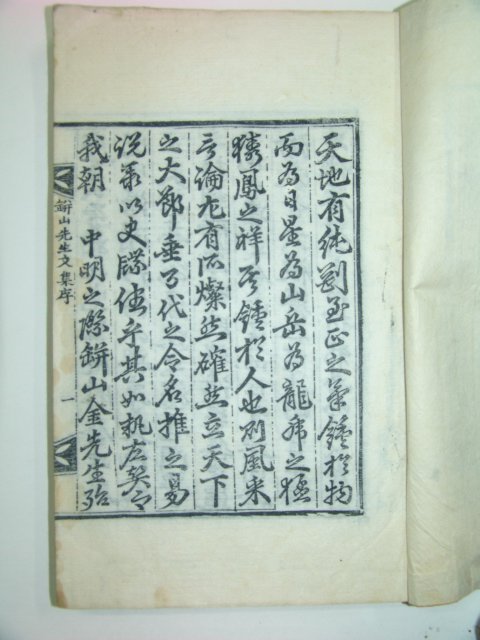 天地有純剛至正之氣鍾於物
而為日星為山岳為龍虎之
鳳之祥其鍾於人也則風采
言論尤有所燦然確然立天下
之大節垂万代之令名推之易
說以史牒乎其如執左契
我朝 中明之際缾山金先生殆
缾山先生文集序 一